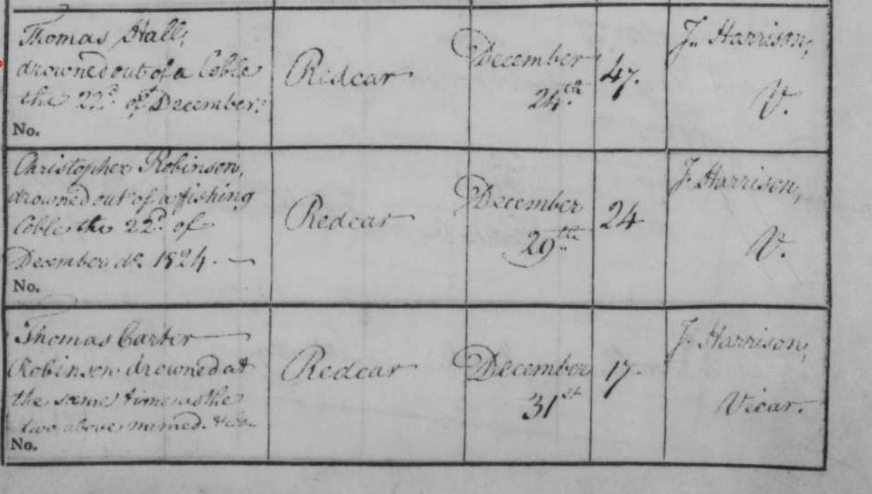 Thomas Hall,
drowned out of a Coble
the 22d. of December.
No.
Redcar
December
24th.
47.
Jn. Harrison,
V.
Christopher Robinson,
drowned out of a fishing
Coble the 22d. of
December do. 1824. —
No.
Redcar
December
29th.
24
J. Harrison,
V.
Thomas Carter
Robinson drowned at
the same time as the
two above named.
No.
Redcar
December
31st
17.
J. Harrison,
Vicar.